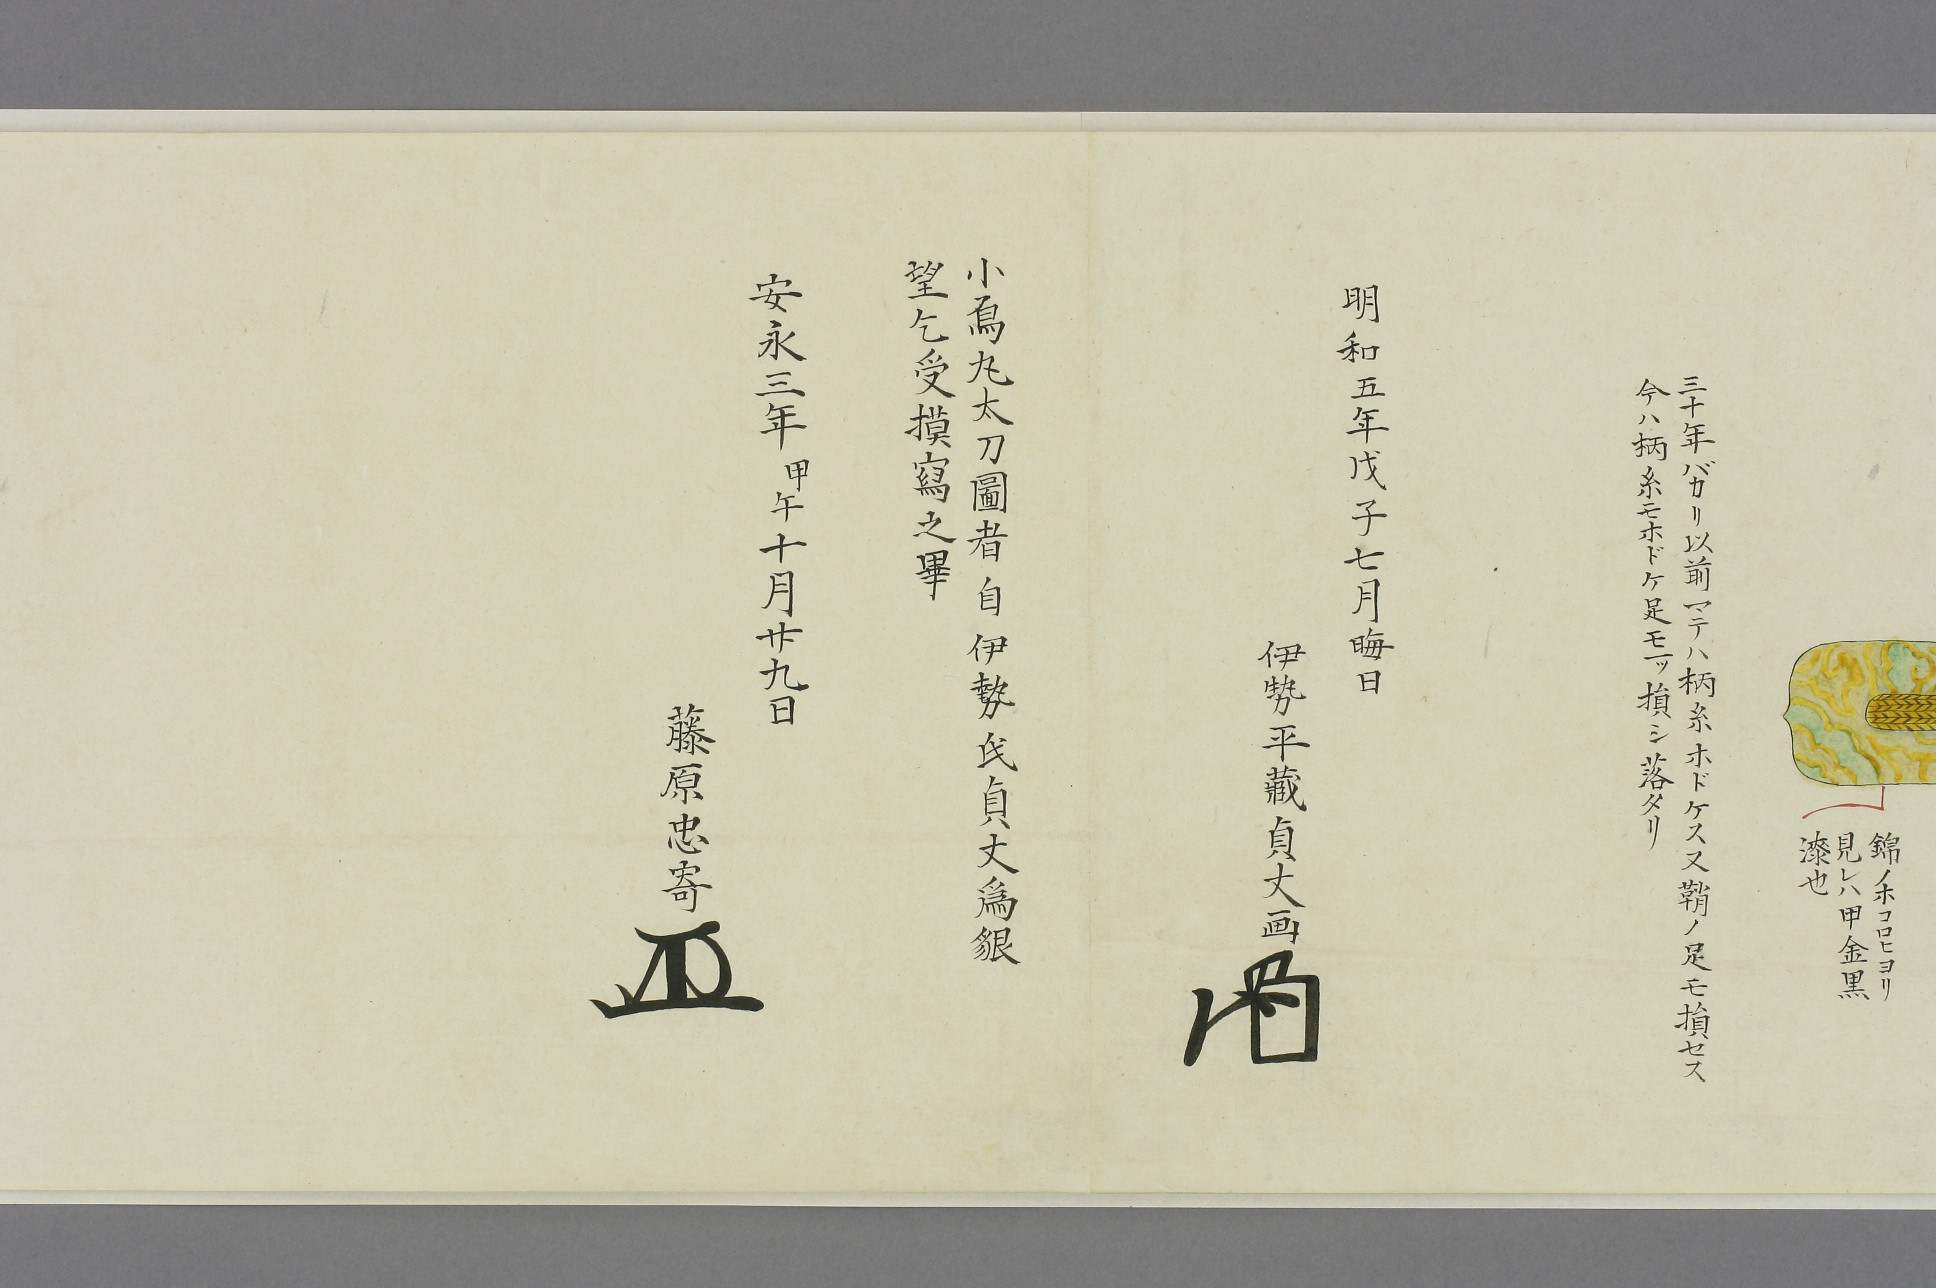 錦ノホコロヒヨリ
見レハ甲金黒
漆也
三十年バカリ以前マテハ柄糸ホドケス又鞘ノ足モ損セス
今ハ柄糸モホドケ足モ一ッ損シ落タリ
明和五年戊子七月晦日
伊勢平藏貞丈画
小烏丸太刀圖者自伊勢氏貞丈爲懇
望乞受摸寫之畢
安永三年甲午十月廿九日
藤原忠寄